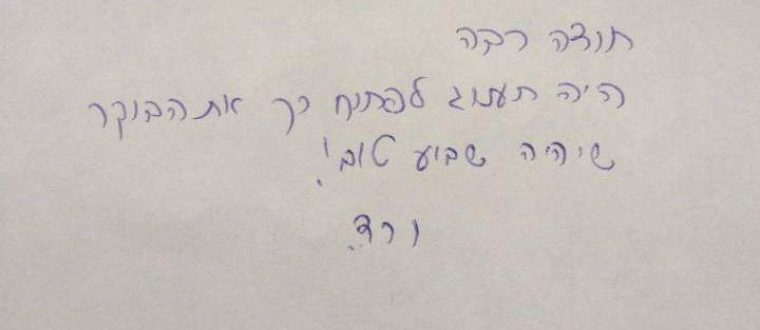 תודה רבה
היה תענוג לפתוח כך את הבוקר
שיהיה שבוע טוב!
ורד